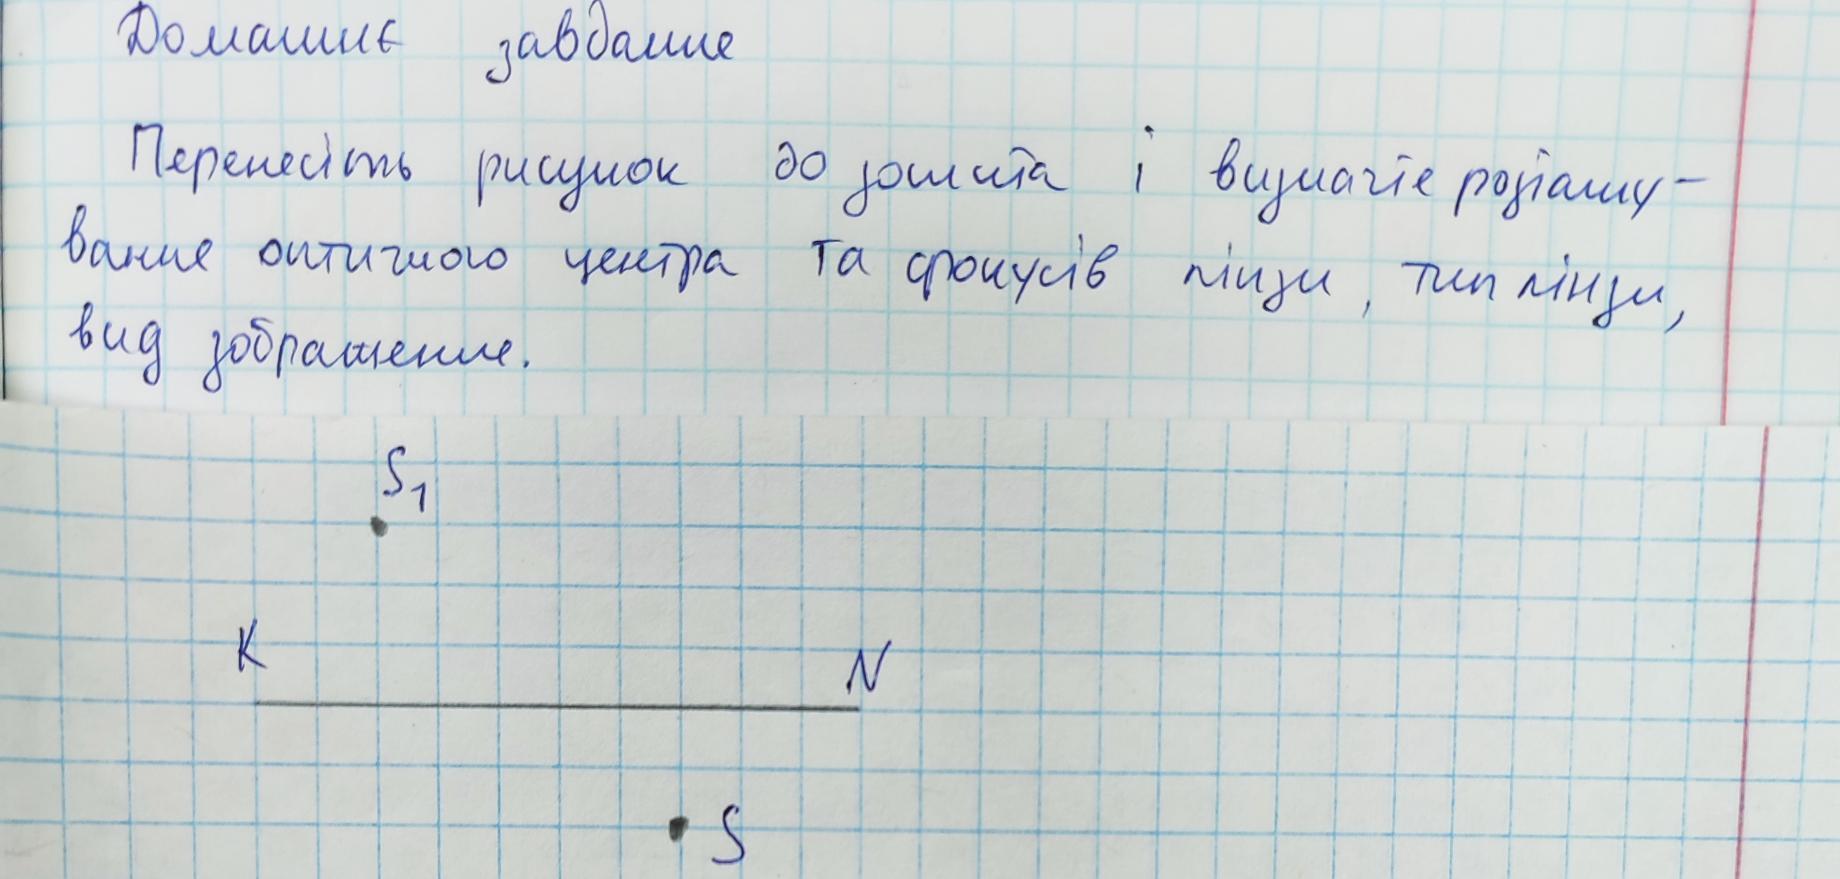 Домашнє завдання
Перенесіть рисунок до зошита і визначте розташу-
вання оптичного центра та фокусів лінзи, тип лінзи,
вид зображення.
S₁
K
N
S